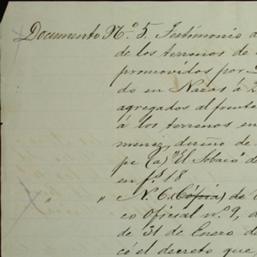 Documento Nº 5. Testimonio d
de los terrenos de
promovidos por
do en Nazas á 2
agregados al frente
á los terrenos en
menez, dueño de
pe (a) "El Sobaco" de
en fs 18
" Nº 6 (Copia) de
co Oficial nº 9, d
de 31 de Enero d
có el decreto que